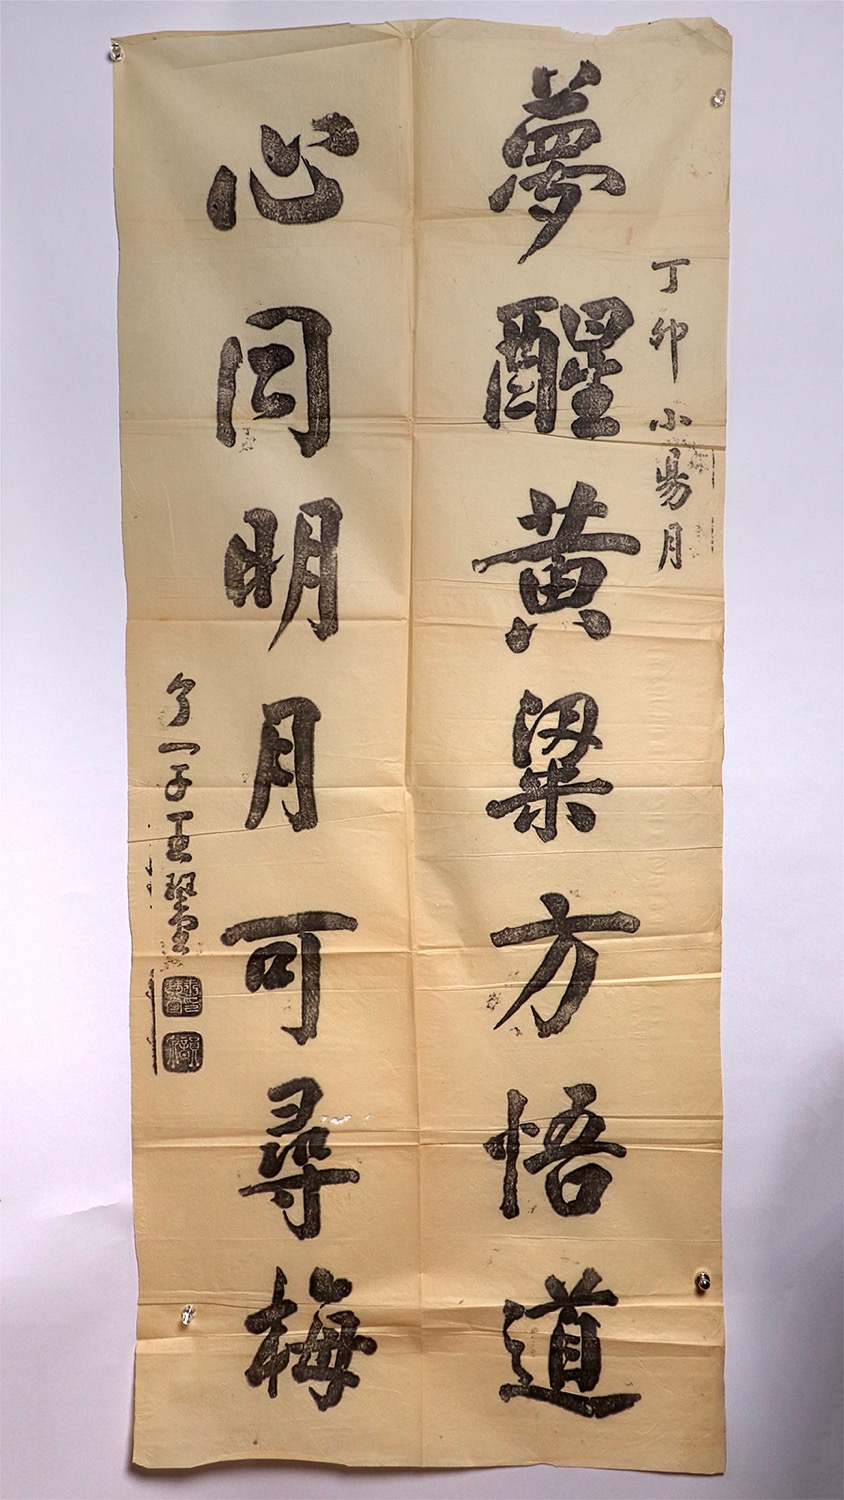 丁卯小昜月
夢醒黄粱方悟道
心同明月可尋梅
了一子王